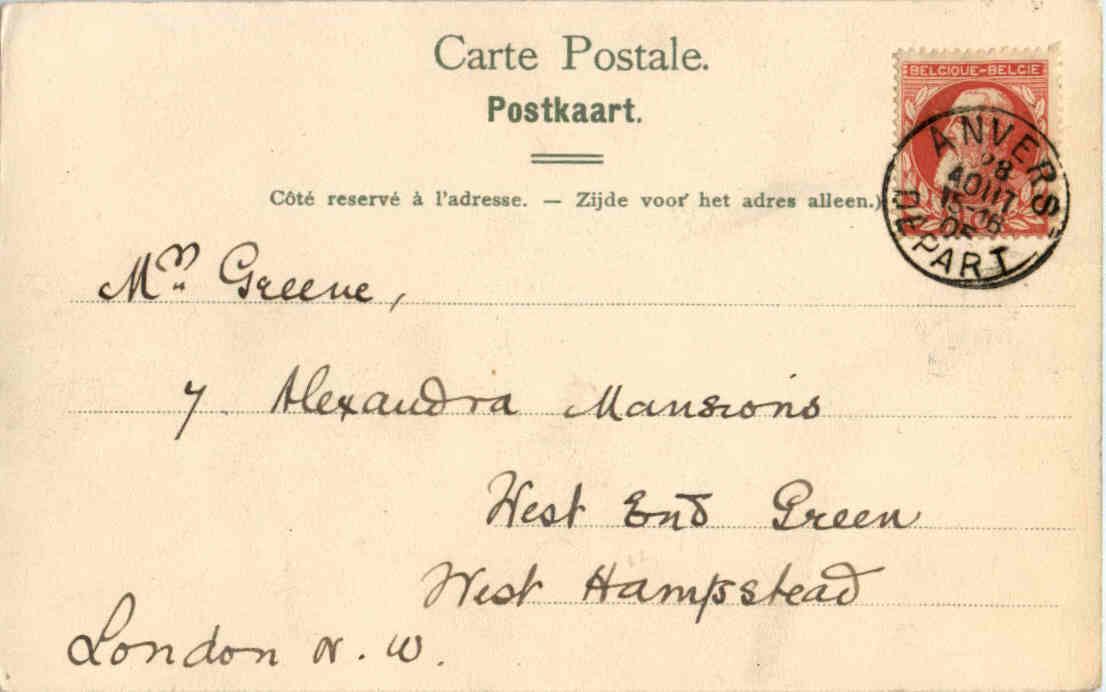 Carte Postale.
Postkaart.
Côté reservé à l'adresse. — Zijde voor het adres alleen.)
BELGIQUE-BELGIE
ANVERS
28
AOUT
15-16
05
DEPART
Mrs Greene,
7 Alexandra Mansions
West End Green
West Hampstead
London N. W.